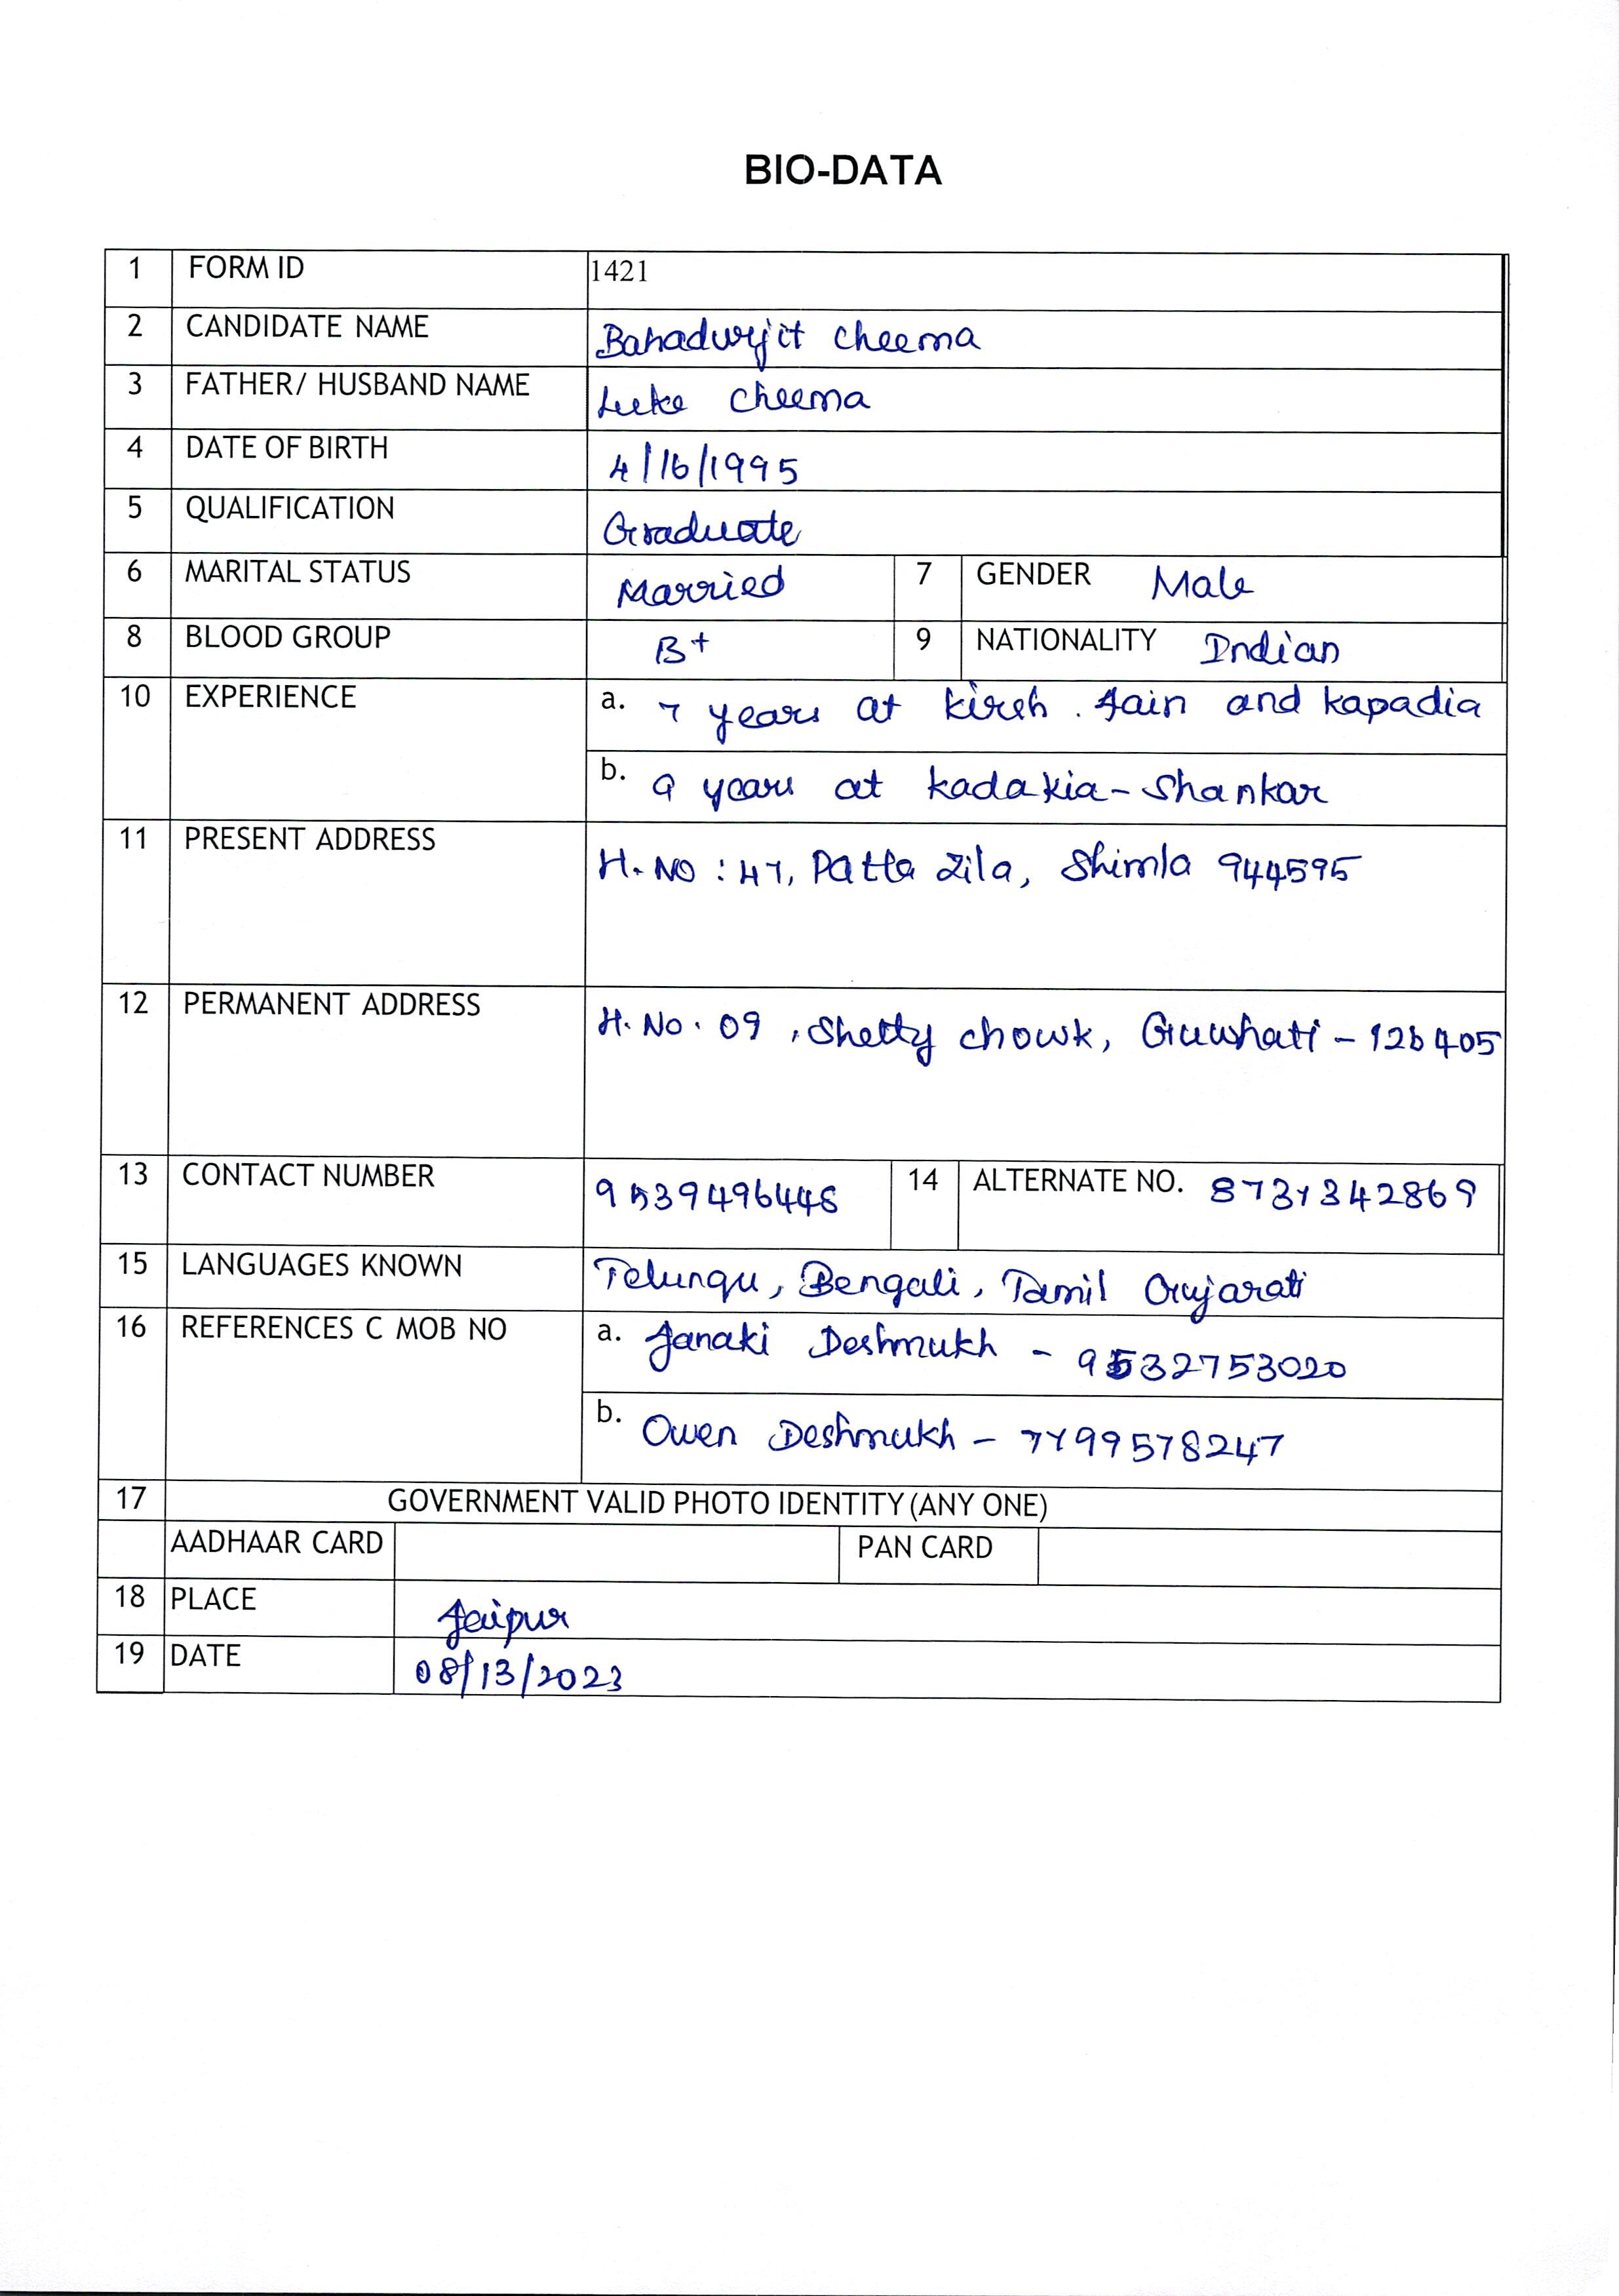 BIO-DATA
1 FORM ID 1421
2 CANDIDATE NAME Bahadurjit Cheema
3 FATHER/ HUSBAND NAME Luke Cheema
4 DATE OF BIRTH 4/16/1995
5 QUALIFICATION Graduate
6 MARITAL STATUS Married 7 GENDER Male
8 BLOOD GROUP B+ 9 NATIONALITY Indian
10 EXPERIENCE a. 7 years at . Jain and kapadia
b. 9 years at kadakia-Shankar
11 PRESENT ADDRESS H.NO : 47, Patta Zila, Shimla 944595
12 PERMANENT ADDRESS H. No. 09 , Shetty chowk, Guwhati - 126405
13 CONTACT NUMBER 9539496448 14 ALTERNATE NO. 8731342869
15 LANGUAGES KNOWN Telungu, Bengali, Tamil Gujarati
16 REFERENCES C MOB NO a. Janaki Deshmukh - 9532753020
b. Owen Deshmukh - 7199578247
17 GOVERNMENT VALID PHOTO IDENTITY (ANY ONE)
AADHAAR CARD PAN CARD
18 PLACE Jaipur
19 DATE 08/13/2023